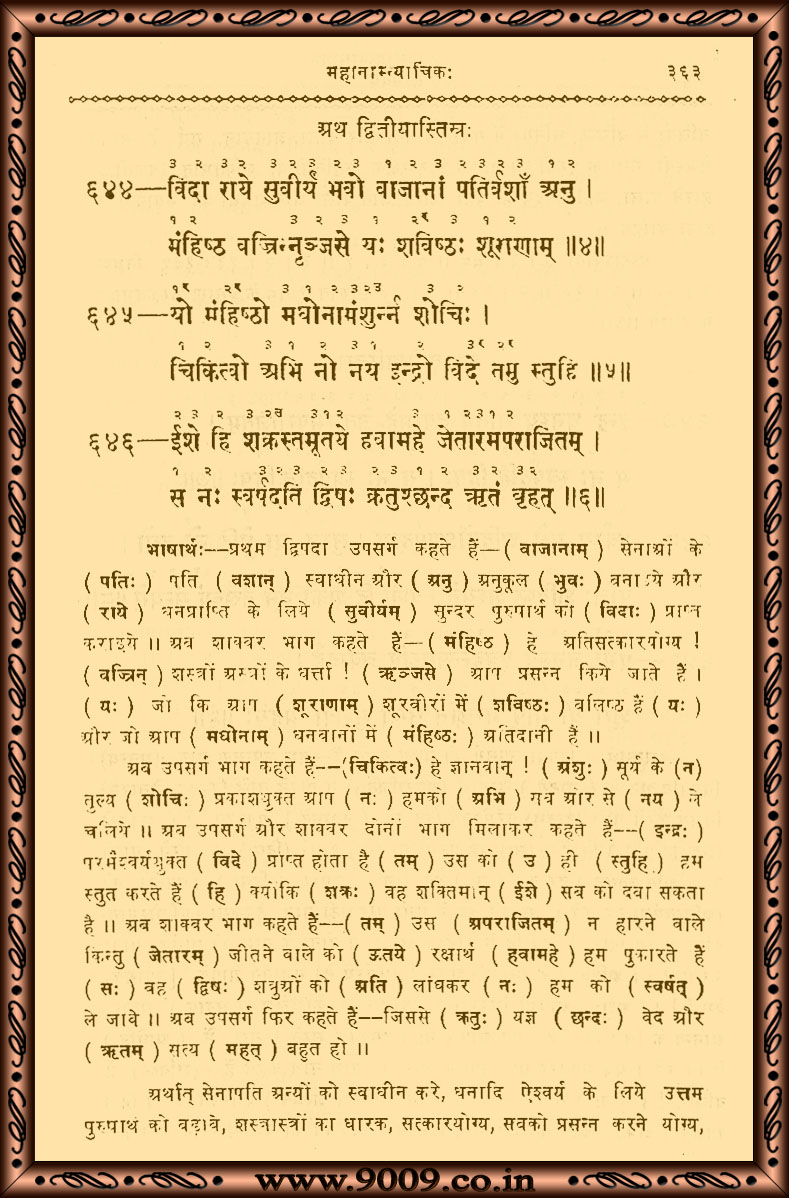 महानाम्न्यार्चिकः ३६३
अथ द्वितीयास्तिस्रः
३ २ ३ २ ३ २ ३ २ ३ १ २ ३ २ ३ २ ३ १ २
६४४—विदा राये सुवीर्यं भवो वाजानां पतिर्वशाँ अनु ।
१ २ ३ २ ३ १ २र ३ १ २
मंहिष्ठ वज्रिन्नृञ्जसे यः शविष्ठः शूराणाम् ॥४॥
१र २र ३ १ २ ३२३ ३ २
६४५—यो मंहिष्ठो मघोनामंशुर्न्न शोचिः ।
१ २ ३ १ २ ३ १ २ ३र २र
चिकित्वो अभि नो नय इन्द्रो विदे तमु स्तुहि ॥५॥
२ ३ २ ३ २उ ३१२ ३ १ २३१ २
६४६—ईशे हि शक्रस्तमूतये हवामहे जेतारमपराजितम् ।
१ २ ३ २ ३ २ ३ २ ३ १ २ ३ २ ३२
स नः स्वर्षदति द्विषः क्रतुश्छन्द ऋतं बृहत् ॥६॥
भाषार्थः--प्रथम द्विपदा उपसर्ग कहते हैं—( वाजानाम् ) सेनाओं के
( पतिः ) पति ( वशान् ) स्वाधीन और ( अनु ) अनुकूल ( भुवः ) बनाइये और
( राये ) धनप्राप्ति के लिये ( सुवीर्यम् ) सुन्दर पुरुषार्थ को ( विदाः ) प्राप्त
कराइये ॥ अब शाक्वर भाग कहते हैं—( मंहिष्ठ ) हे अतिसत्कारयोग्य !
( वज्रिन् ) शस्त्रों अस्त्रों के धर्त्ता ! ( ऋञ्जसे ) आप प्रसन्न किये जाते हैं ।
( यः ) जो कि आप ( शूराणाम् ) शूरवीरों में ( शविष्ठः ) बलिष्ठ हैं ( यः )
और जो आप ( मघोनाम् ) धनवानों में ( मंहिष्ठः ) अतिदानी हैं ॥
अब उपसर्ग भाग कहते हैं--(चिकित्वः) हे ज्ञानवान् ! ( अंशुः ) सूर्य के (न)
तुल्य ( शोचिः ) प्रकाशयुक्त आप ( नः ) हमको ( अभि ) सब ओर से ( नय ) ले
चलिये ॥ अब उपसर्ग और शाक्वर दोनों भाग मिलाकर कहते हैं--( इन्द्रः )
परमैश्वर्ययुक्त ( विदे ) प्राप्त होता है ( तम् ) उस को ( उ ) ही ( स्तुहि ) हम
स्तुत करते हैं ( हि ) क्योंकि ( शक्रः ) वह शक्तिमान् ( ईशे ) सब को दबा सकता
है ॥ अब शाक्वर भाग कहते हैं--( तम् ) उस ( अपराजितम् ) न हारने वाले
किन्तु ( जेतारम् ) जीतने वाले को ( ऊतये ) रक्षार्थ ( हवामहे ) हम पुकारते हैं
( सः ) वह ( द्विषः ) शत्रुओं को ( अति ) लांघकर ( नः ) हम को ( स्वर्षत् )
ले जावे ॥ अब उपसर्ग फिर कहते हैं--जिससे ( क्रतुः ) यज्ञ ( छन्दः ) वेद और
( ऋतम् ) सत्य ( महत् ) बहुत हो ॥
अर्थात् सेनापति अन्यों को स्वाधीन करे, धनादि ऐश्वर्य के लिये उत्तम
पुरुषार्थ को बढ़ावे, शस्त्रास्त्रों का धारक, सत्कारयोग्य, सबको प्रसन्न करने योग्य,
www.9009.co.in